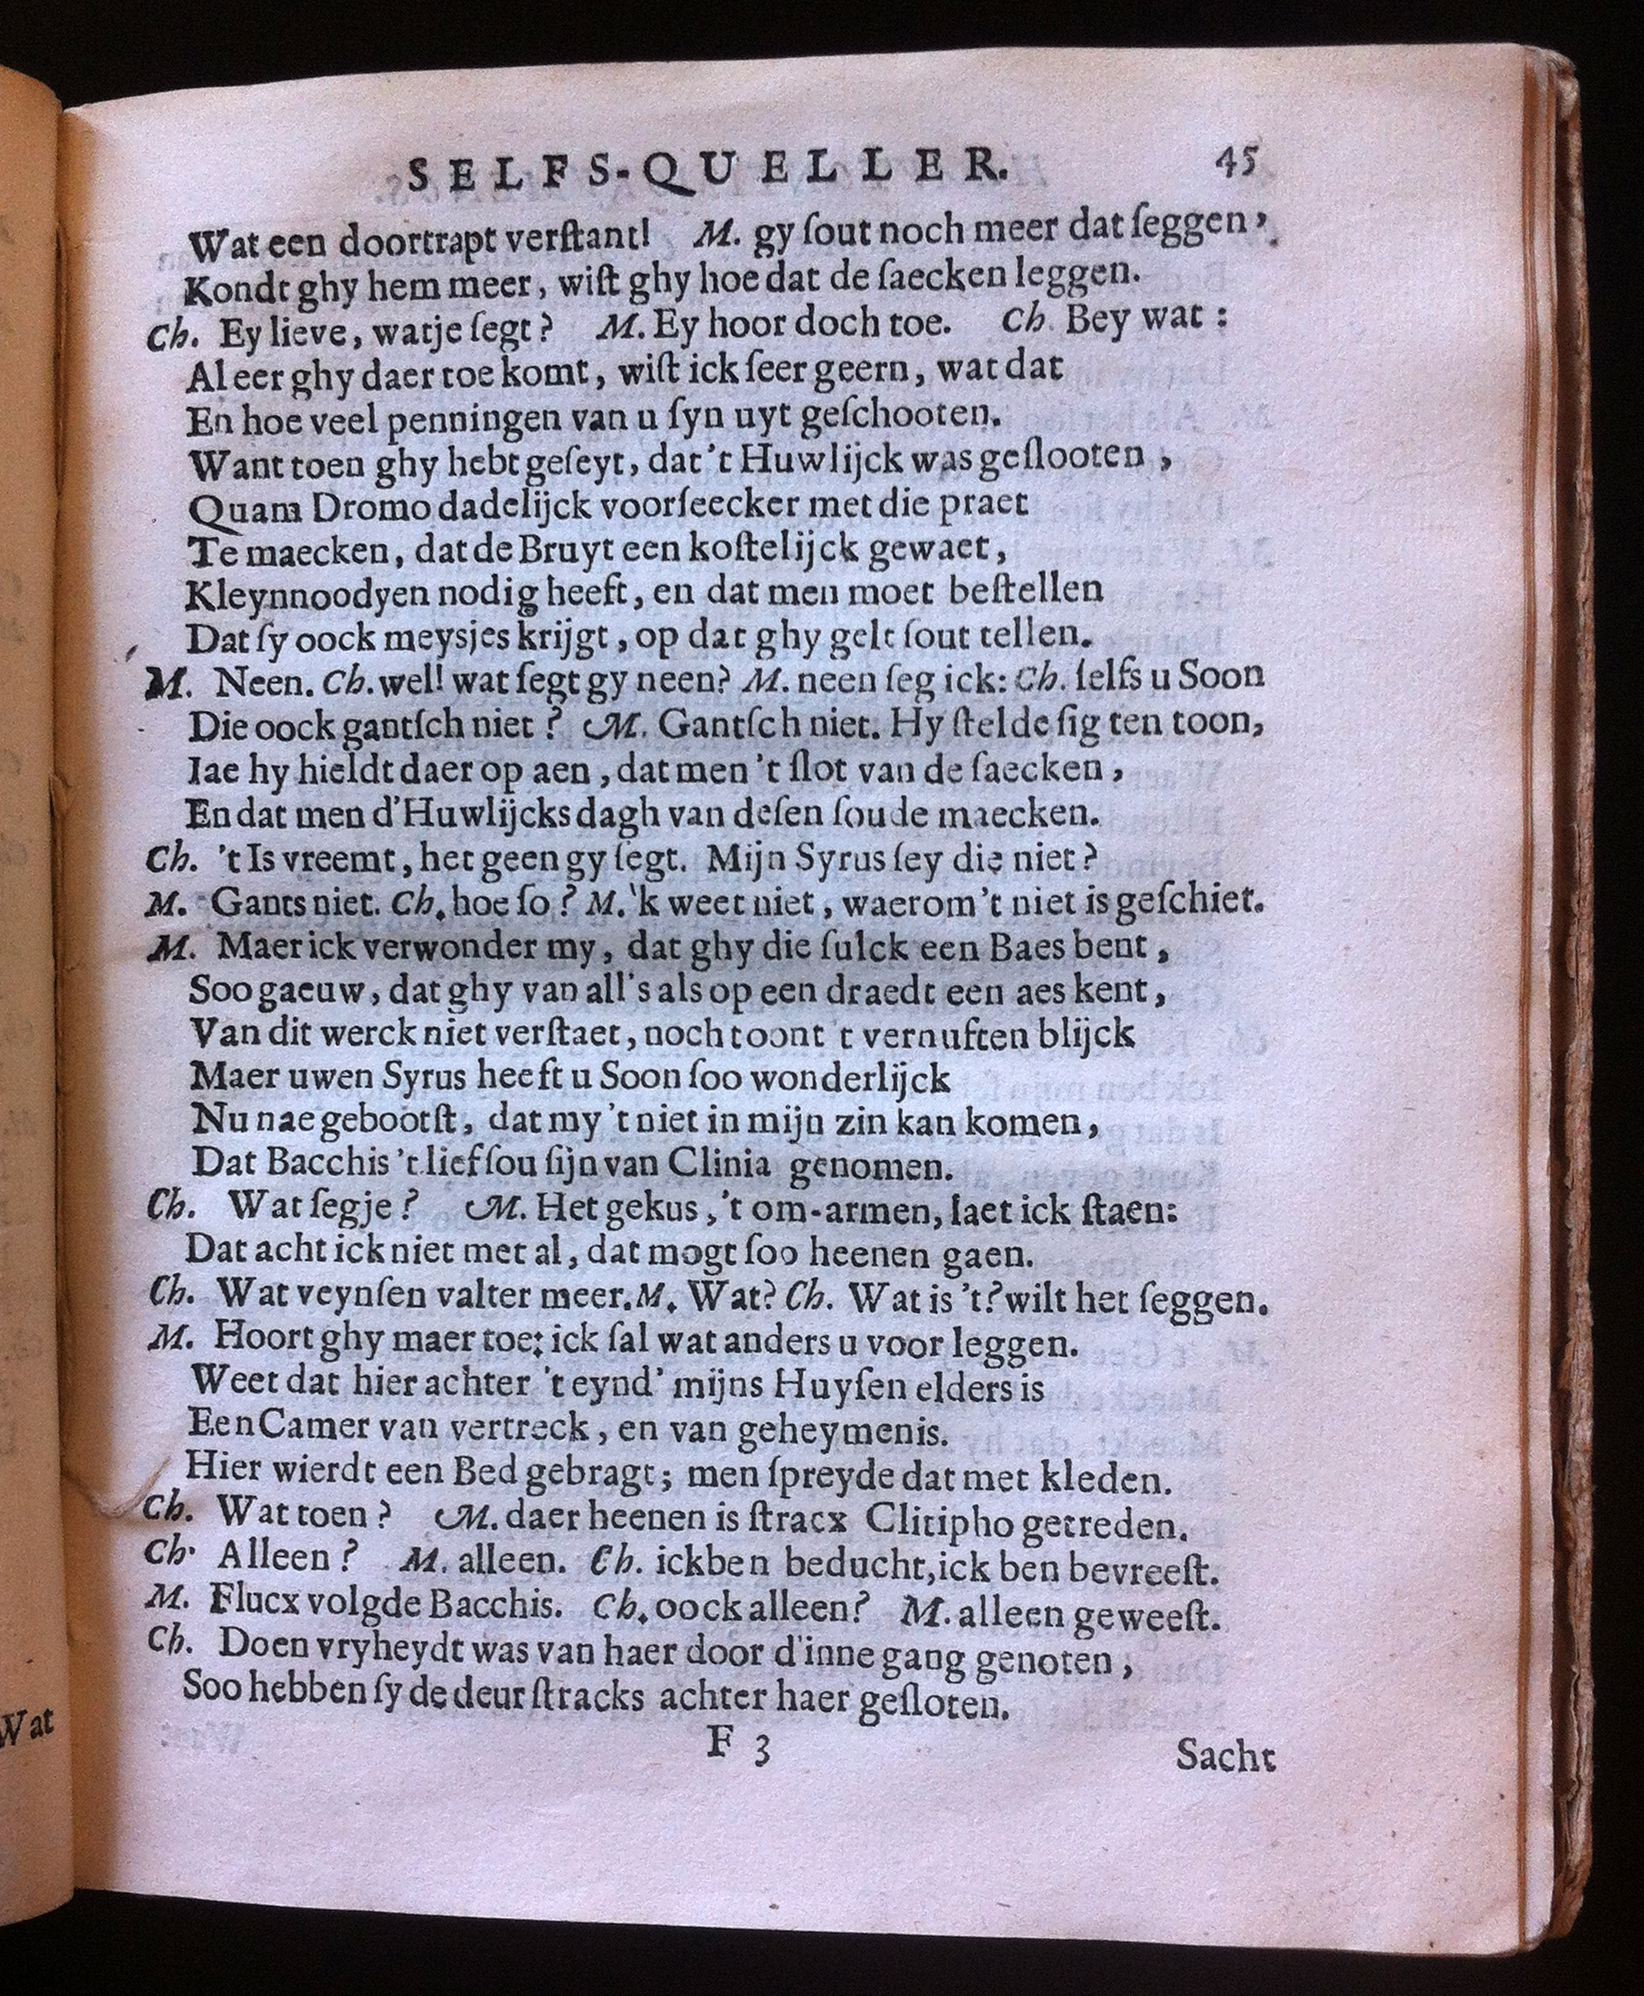 SELFS-QUELLER. 45
Wat een doortrapt verſtant! M. gy ſout noch meer dat ſeggen,
Kondt ghy hem meer, wiſt ghy hoe dat de ſaecken leggen.
Ch. Ey lieve, watje ſegt? M. Ey hoor doch toe. Ch. Bey wat:
Al eer ghy daer toe komt, wiſt ick ſeer geern, wat dat
En hoe veel penningen van u ſyn uyt geſchooten.
Want toen ghy hebt geſeyt, dat 't Huwlijck was geſlooten,
Quam Dromo dadelijck voorſeecker met die praet
Te maecken, dat de Bruyt een koſtelijck gewaet,
Kleynnoodyen nodig heeft, en dat men moet beſtellen
Dat ſy oock meysjes krijgt, op dat ghy gelt ſout tellen.
M. Neen. Ch. wel! wat ſegt gy neen? M. neen ſeg ick: Ch. ſelfs u Soon
Die oock gantſch niet? M. Gantſch niet. Hy ſtelde ſig ten toon,
Iae hy hieldt daer op aen, dat men 't ſlot van de ſaecken,
En dat men d'Huwlijcks dagh van deſen ſoude maecken.
Ch. 't Is vreemt, het geen gy ſegt. Mijn Syrus ſey die niet?
M. Gants niet. Ch. hoe ſo? M. 'k weet niet, waerom 't niet is geſchiet.
M. Maer ick verwonder my, dat ghy die ſulck een Baes bent,
Soo gaeuw, dat ghy van all's als op een draedt een aes kent,
Van dit werck niet verſtaet, noch toont 't vernuften blijck
Maer uwen Syrus heeft u Soon ſoo wonderlijck
Nu nae gebootſt, dat my 't niet in mijn zin kan komen,
Dat Bacchis 't lief ſou ſijn van Clinia genomen.
Ch. Wat ſegje? M. Het gekus, 't om-armen, laet ick ſtaen:
Dat acht ick niet met al, dat mogt ſoo heenen gaen.
Ch. Wat veynſen valter meer. M. Wat? Ch. Wat is 't? wilt het ſeggen.
M. Hoort ghy maer toe: ick ſal wat anders u voor leggen.
Weet dat hier achter 't eynd' mijns Huyſen elders is
Een Camer van vertreck, en van geheymenis.
Hier wierdt een Bed gebragt; men ſpreyde dat met kleden.
Ch. Wat toen? M. daer heenen is ſtracx Clitipho getreden.
Ch. Alleen? M. alleen. Ch. ick ben beducht, ick ben bevreeſt.
M. Flucx volgde Bacchis. Ch. oock alleen? M. alleen geweeſt.
Ch. Doen vryheydt was van haer door d'inne gang genoten,
Soo hebben ſy de deur ſtracks achter haer geſloten.
F 3 Sacht
Wat